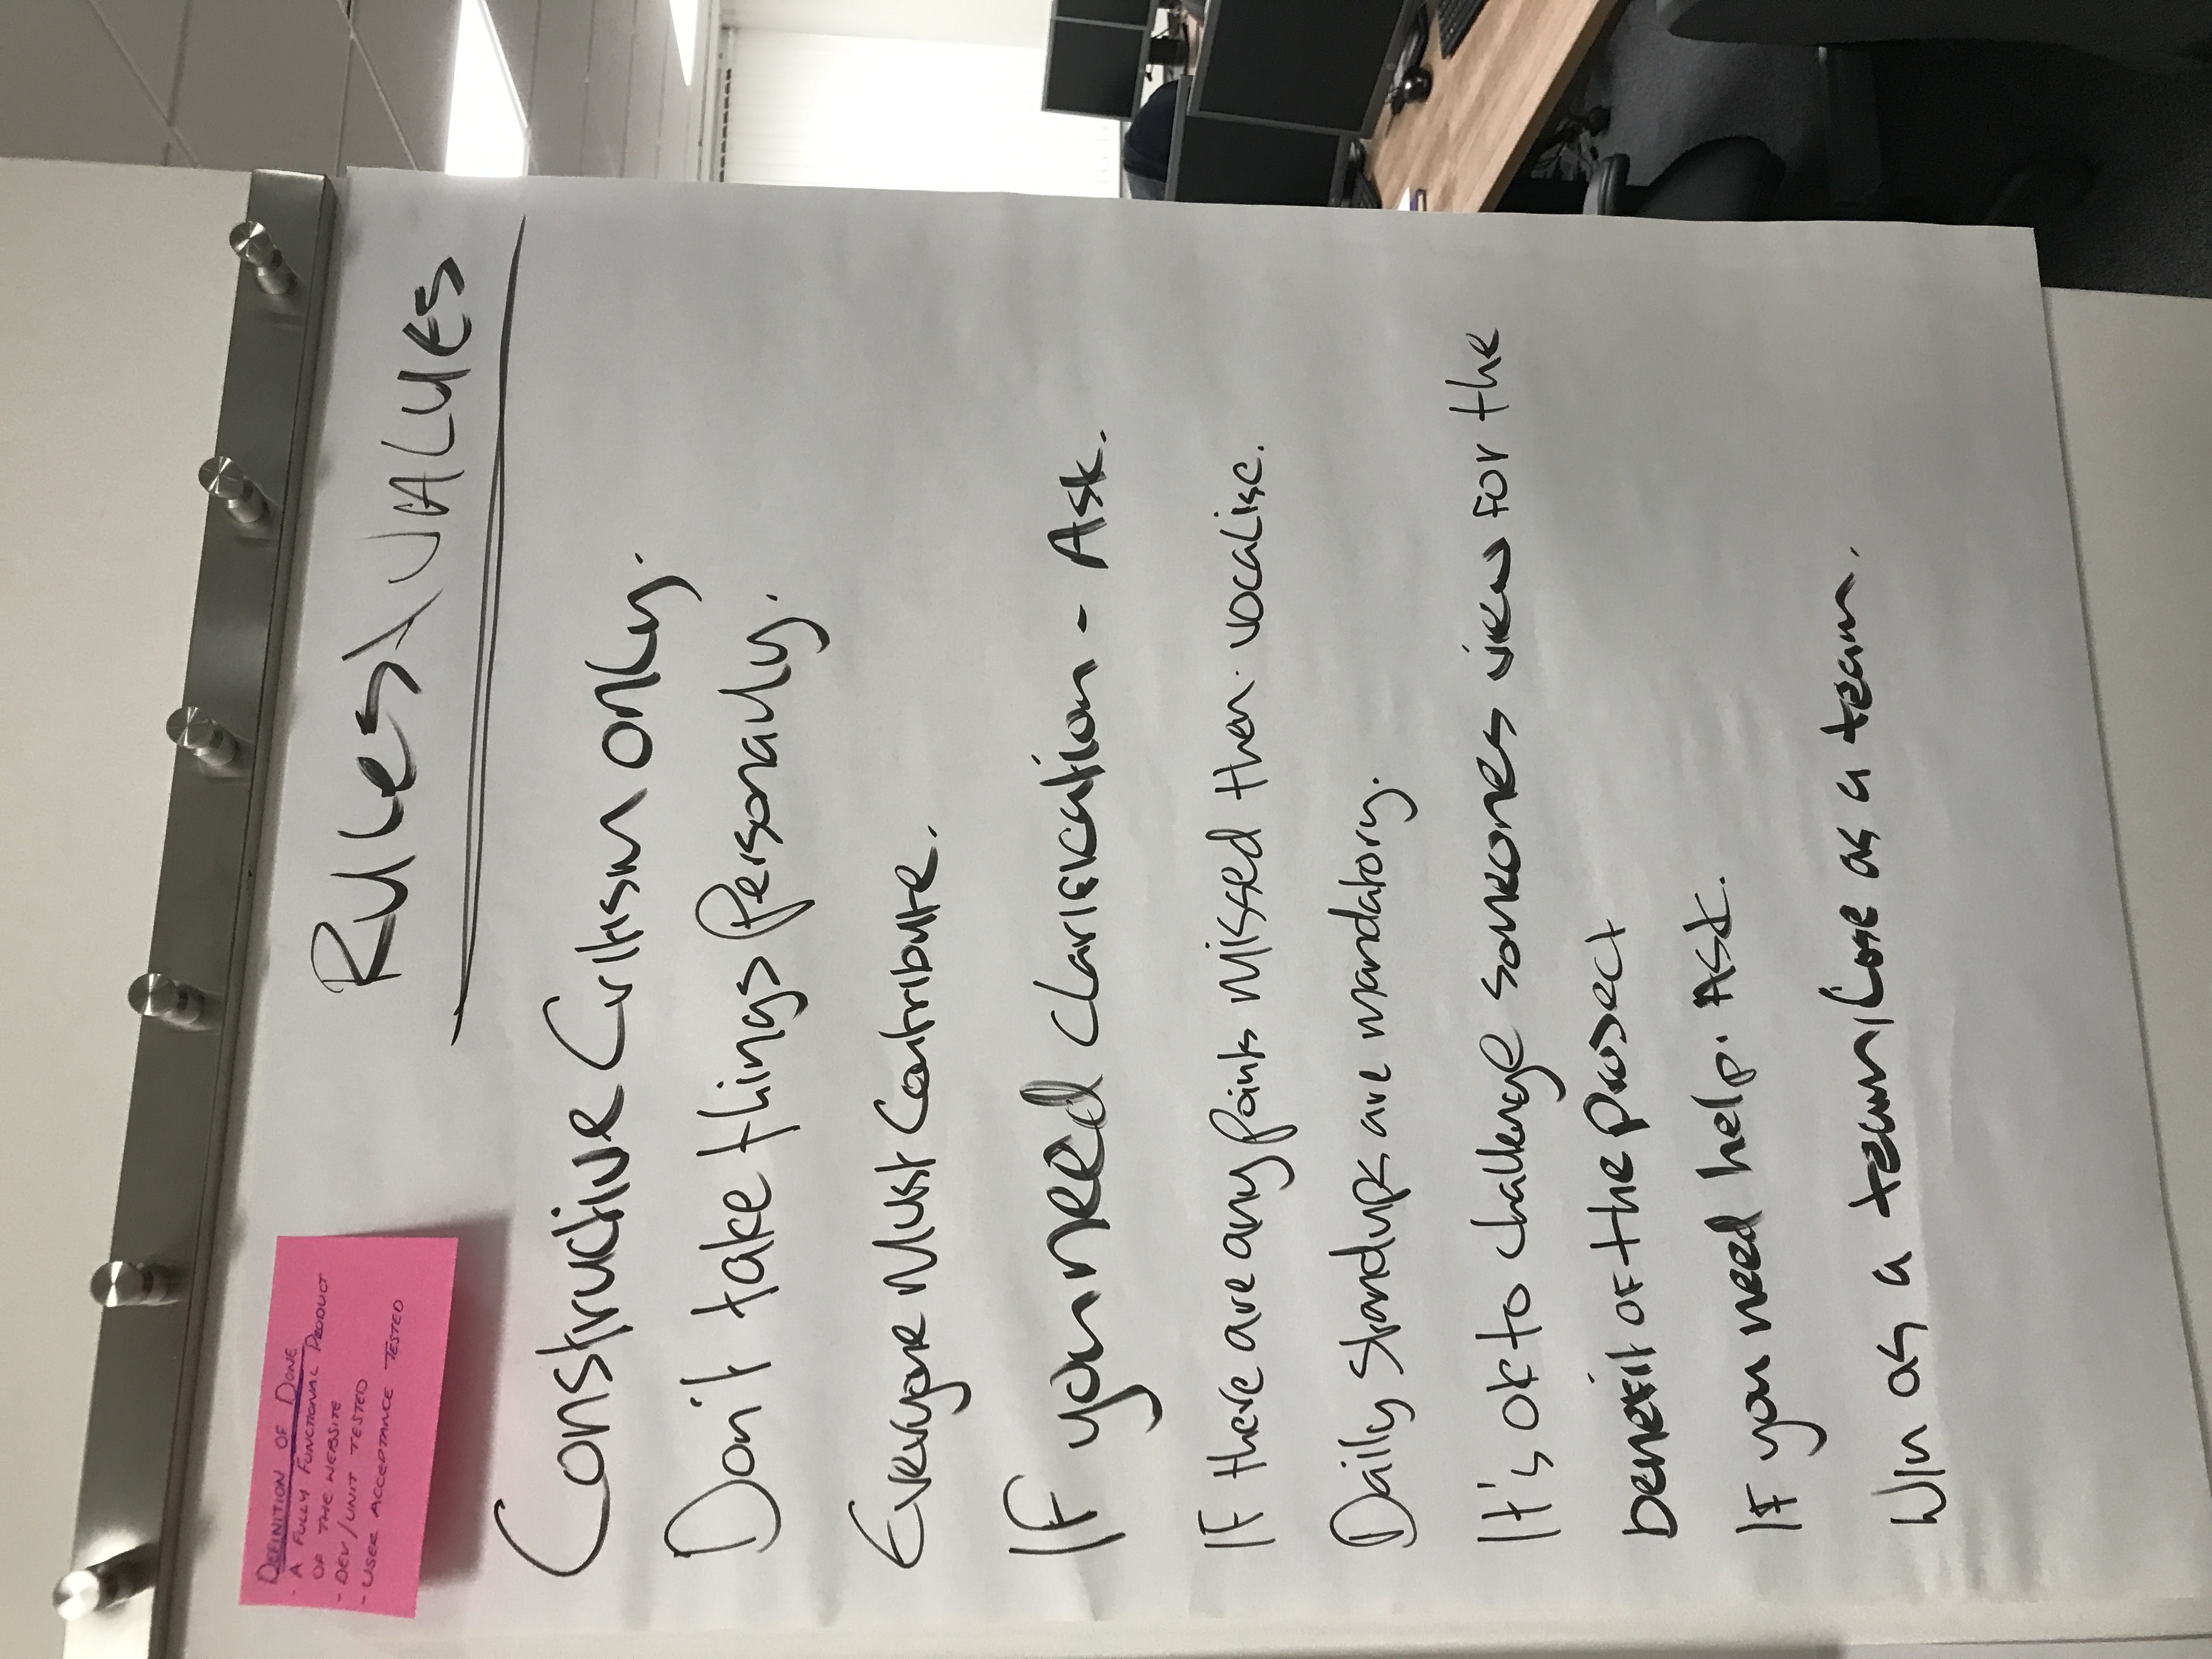 DEFINITION OF DONE
- A FULLY FUNCTIONAL PRODUCT
OF THE WEBSITE
- DEV/UNIT TESTED
- USER ACCEPTANCE TESTED
Rules\VALUES
Constructive Critism only.
Don't take things Personally.
Everyone Must Contribute.
If you need clarification - Ask.
If there are any points missed then vocalise.
Daily standups are mandatory.
It's ok to challenge someones view for the
benefit of the project
If you need help. Ask.
Win as a team, Lose as a team.